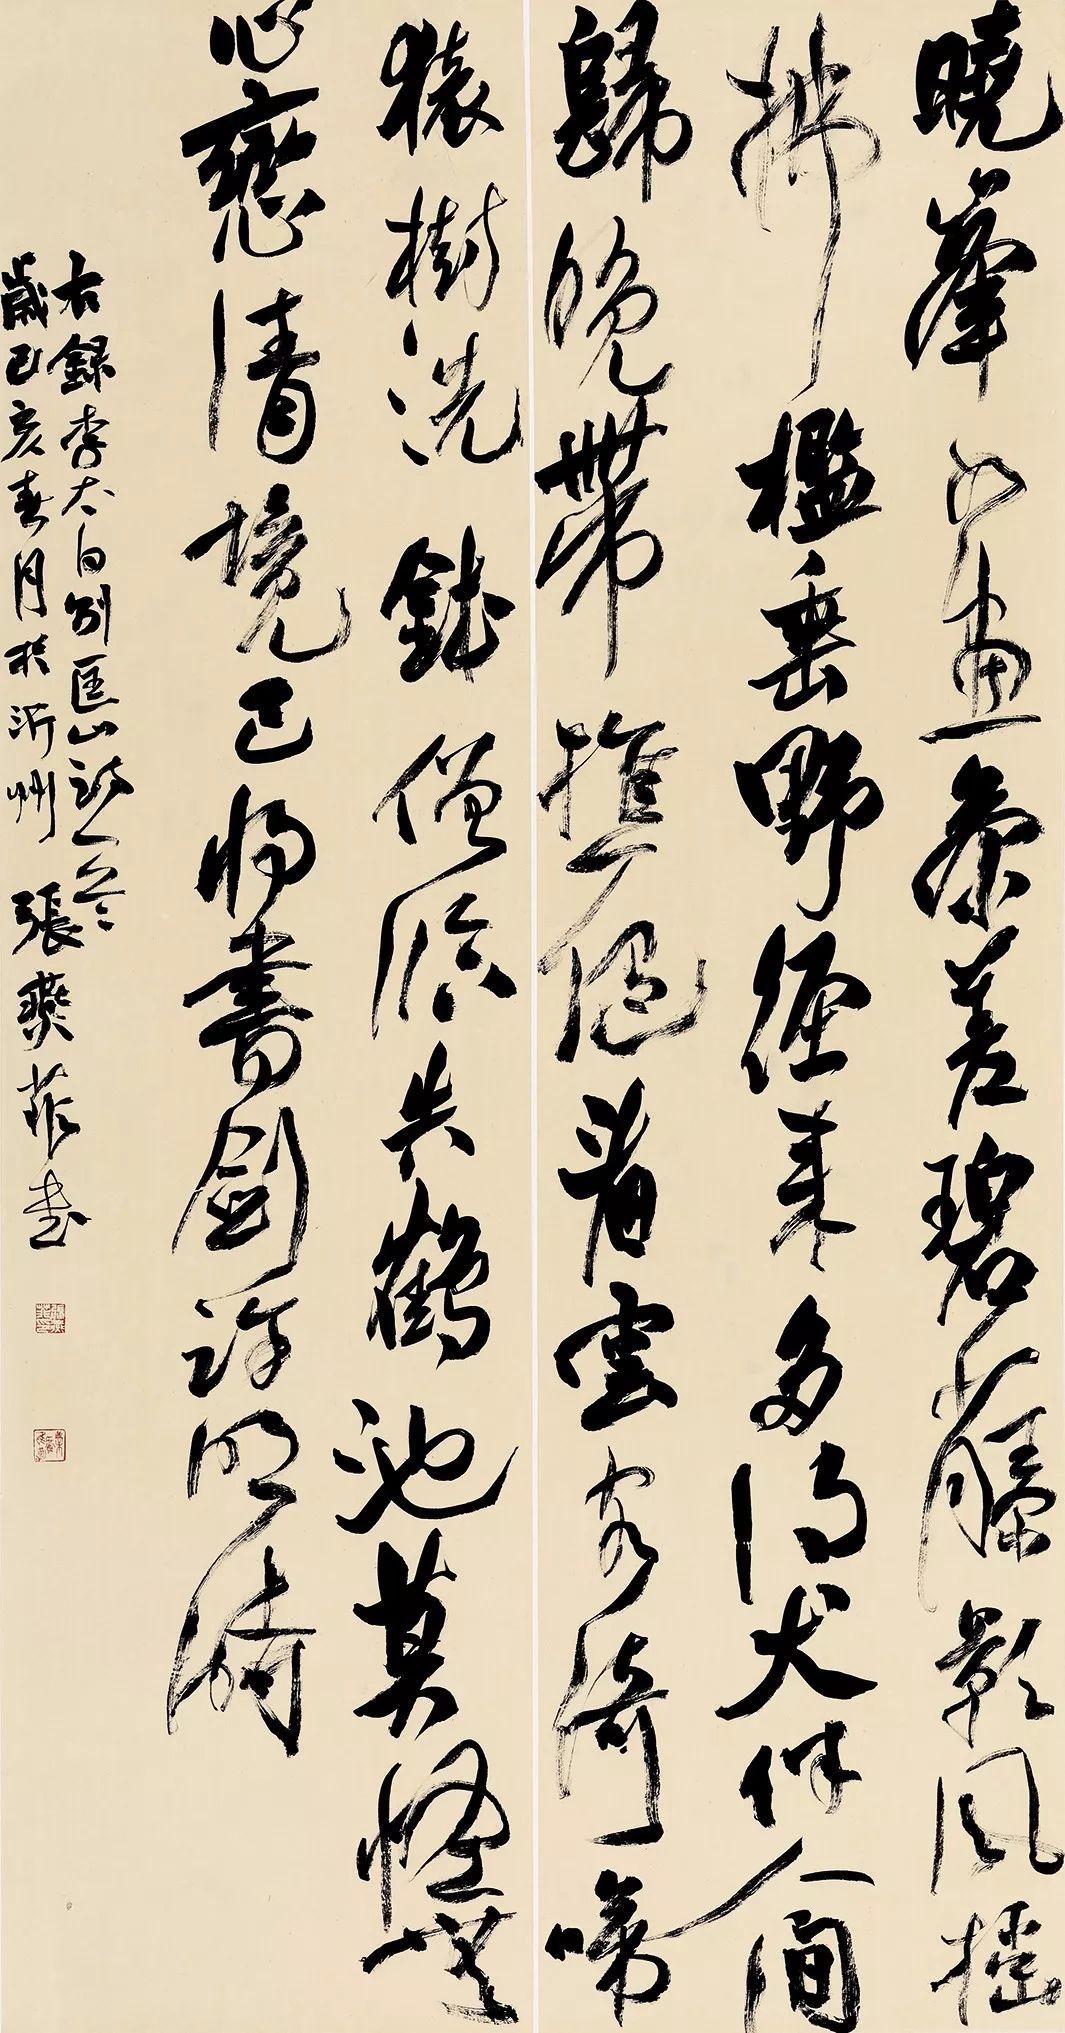 曉峯如畫参差碧藤影風摇
拂檻垂野徑来多將犬伴人間
歸晚帶樵隨看雲客倚啼
猿樹洗鉢僧臨失鶴池莫怪無
心戀清境已將書劍許明時
右録李太白别匡山詩一首
歲己亥春月於沂州 張燕菲書